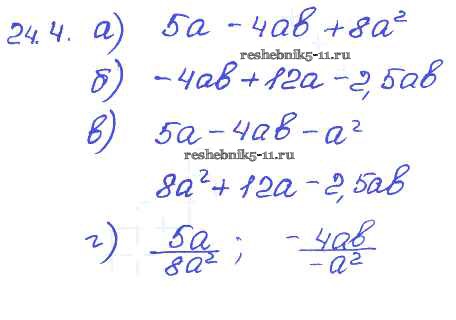 24.4. а) 5a - 4ab + 8a²
reshebnik5-11.ru
б) -4ab + 12a - 2,5ab
в) 5a - 4ab - a²
reshebnik5-11.ru
8a² + 12a - 2,5ab
г) 5a/8a² ; -4ab/-a²